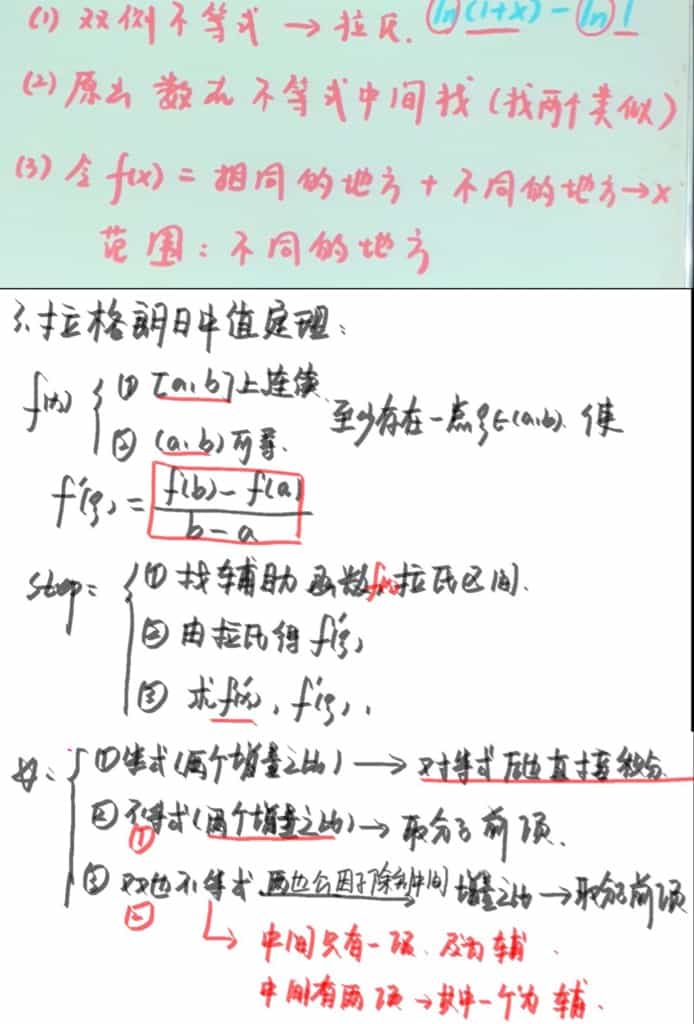 (1) 双侧不等式 → 拉氏. ln(1+x) - ln 1
(2) 原函数在不等式中间找 (找两个类似)
(3) 令 f(x) = 相同的地方 + 不同的地方→x
范围: 不同的地方
3. 拉格朗日中值定理:
f(x) { ① [a,b]上连续.
② (a,b)可导.
至少存在一点ξ∈(a,b). 使
f'(ξ) = f(b) - f(a) / b - a
step: { ① 找辅助函数f(x), 拉氏区间.
② 由拉氏得 f'(ξ)
③ 求f'(x), f'(ξ).
① 等式(两个增量之比) → 对等式右边直接积分.
② 不等式(两个增量之比) → 取分子前项.
①
③ 双边不等式 两边公因子除到中间 增量之比 → 取分子前项
②
中间只有一项. 及为辅.
中间有两项 → 其中一个为辅.